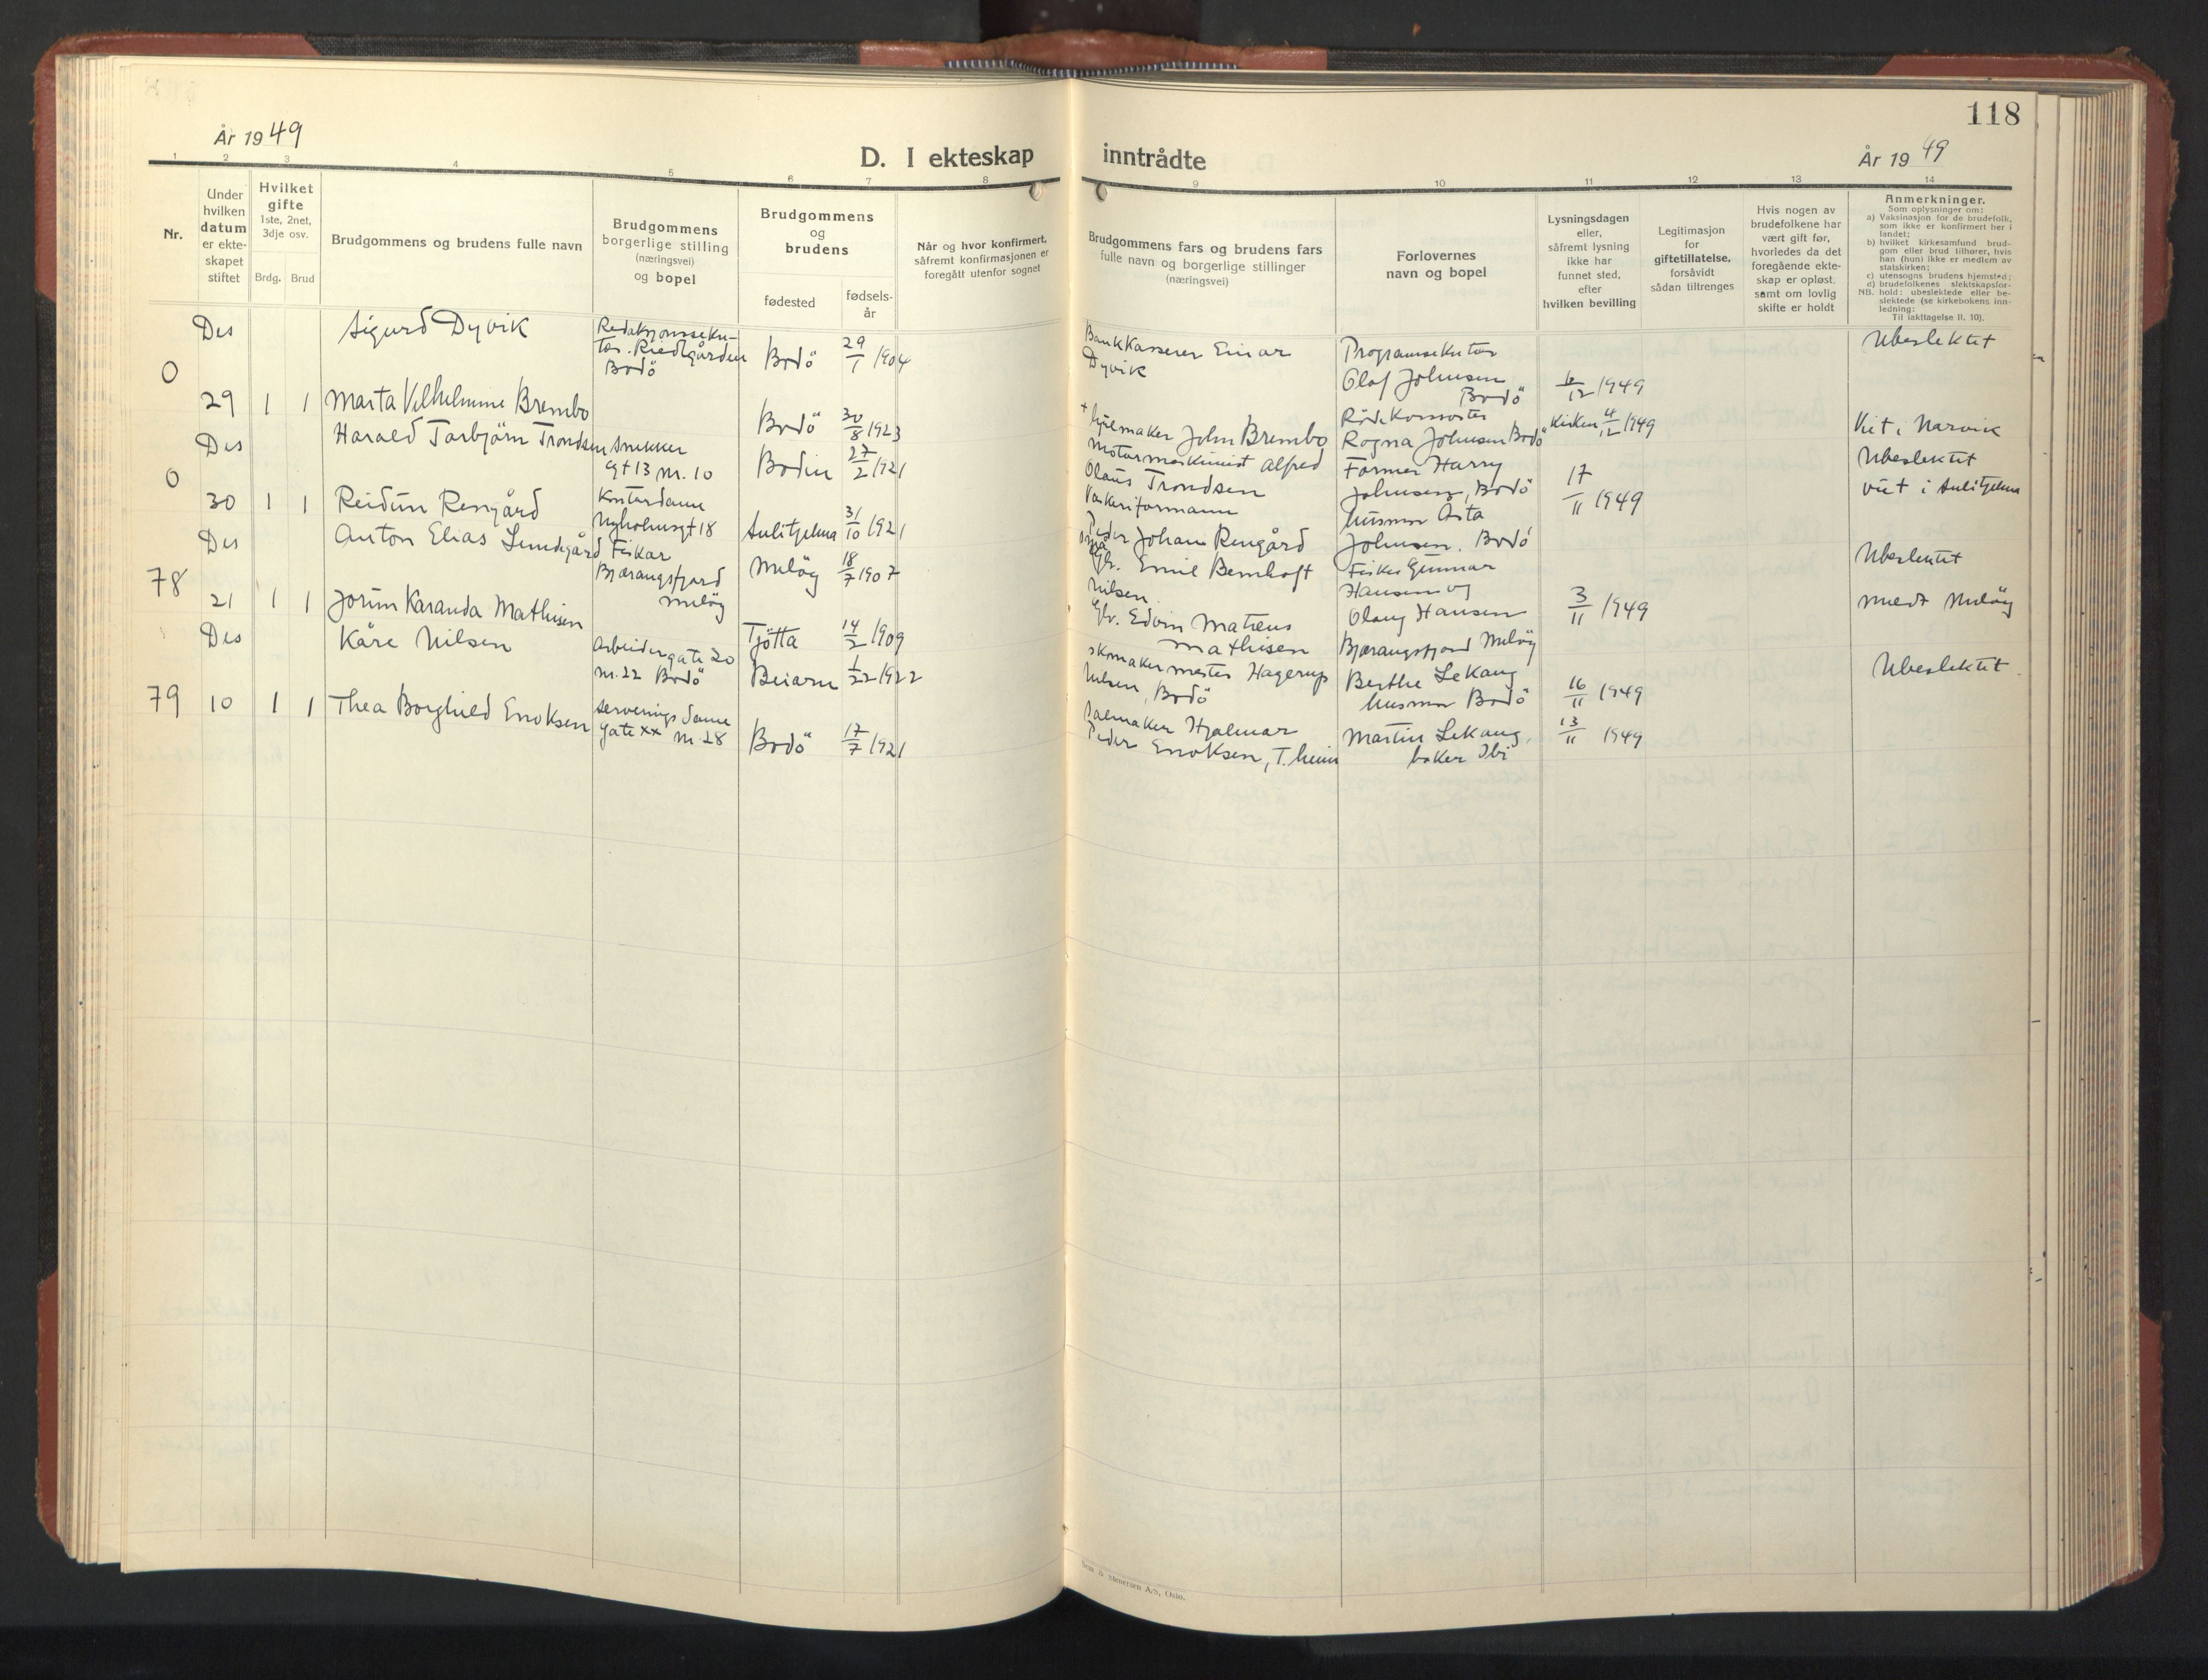 118
År 1949
D. I ekteskap inntrådte
År 1949
1 2 3 4 5 6 7 8 9 10 11 12 13 14
Nr.
Under
hvilken
datum
er ekte-
skapet
stiftet
Hvilket
gifte
1ste, 2net,
3dje osv.
Brdg. Brud
Brudgommens og brudens fulle navn
Brudgommens
borgerlige stilling
(næringsvei)
og bopel
Brudgommens
og
brudens
fødested
fødsels-
år
Når og hvor konfirmert,
såfremt konfirmasjonen er
foregått utenfor sognet
Brudgommens fars og brudens fars
fulle navn og borgerlige stillinger
(næringsvei)
Forlovernes
navn og bopel
Lysningsdagen
eller,
såfremt lysning
ikke har
funnet sted,
efter
hvilken bevilling
Legitimasjon
for
giftetillatelse,
forsåvidt
sådan tiltrenges
Hvis nogen av
brudefolkene har
vært gift før,
hvorledes da det
foregående ekte-
skap er opløst,
samt om lovlig
skifte er holdt
Anmerkninger.
Som oplysninger om:
a) Vaksinasjon for de brudefolk,
som ikke er konfirmert her i
landet;
b) hvilket kirkesamfund brud-
gom eller brud tilhører, hvis
han (hun) ikke er medlem av
statskirken;
c) utensogns brudens hjemsted;
d) brudefolkenes slektskapsfor-
hold: ubeslektede eller be-
slektede (se kirkebokens inn-
ledning:
NB.
Til iakttagelse II. 10).
0
Des
29 1 1
Sigurd Dyvik
Redaksjonssekre-
tær. Riedlgården
Bodö
Bodö 29/1 1904
Bankkasserer Einar
Dyvik
Programsekretær
Olaf Johnsen
Bodö
6/12 1949
Ubeslektet
Marta Vilhelmine Brembo
Bodö 30/8 1923
+ John Brembo
Röde Korssøster
Rogna Johnsen Bodö
Kirken 4/12 1949
Viet i Narvik
0
Des
30 1 1
Harald Torbjörn Trondsen
Snekker
gt 13 nr. 10
Bodin 27/2 1921
Motormaskinist Alfred
Olaus Trondsen
Former Harry
Johnsen, Bodö
17/11 1949
Ubeslektet
viet i Sulitjelma
Reidun Rengård
Kontordame
Nyholmsgt 18
Sulitjelma 31/10 1921
Vaskeriformann
Peder Johan Rengård
husmor Asta
Johnsen. Bodö
78
Des
21 1 1
Anton Elias Lundgård
Fisker
Bjærangsfjord
Melöy
Melöy 18/7 1907
Gbr. Emil Bernhoft
Nilsen
Fisker Gunnar
Hansen og
Olaug Hansen
Bjærangsfjord Melöy
3/11 1949
Ubeslektet
Melöy
Jorun Karanda Mathisen
Tjötta 14/2 1909
Gbr. Edvin Mateus
Mathisen
79
Des
10 1 1
Kåre Nilsen
Arbeider gate 20
nr. 22 Bodö
Beiarn 1/22 1922
skomakermester Hagerup
Nilsen, Bodö
Berthe Lekang
husmor Bodö
16/11 1949
Ubeslektet
Thea Borghild Enoksen
Serveringsdame
gate xx nr. 28
Bodö 17/7 1921
Salmaker Hjalmar
Peder Enoksen, T.heim
Martin Lekang,
baker Ibi
13/11 1949
Sem & Stenersen A/S, Oslo.